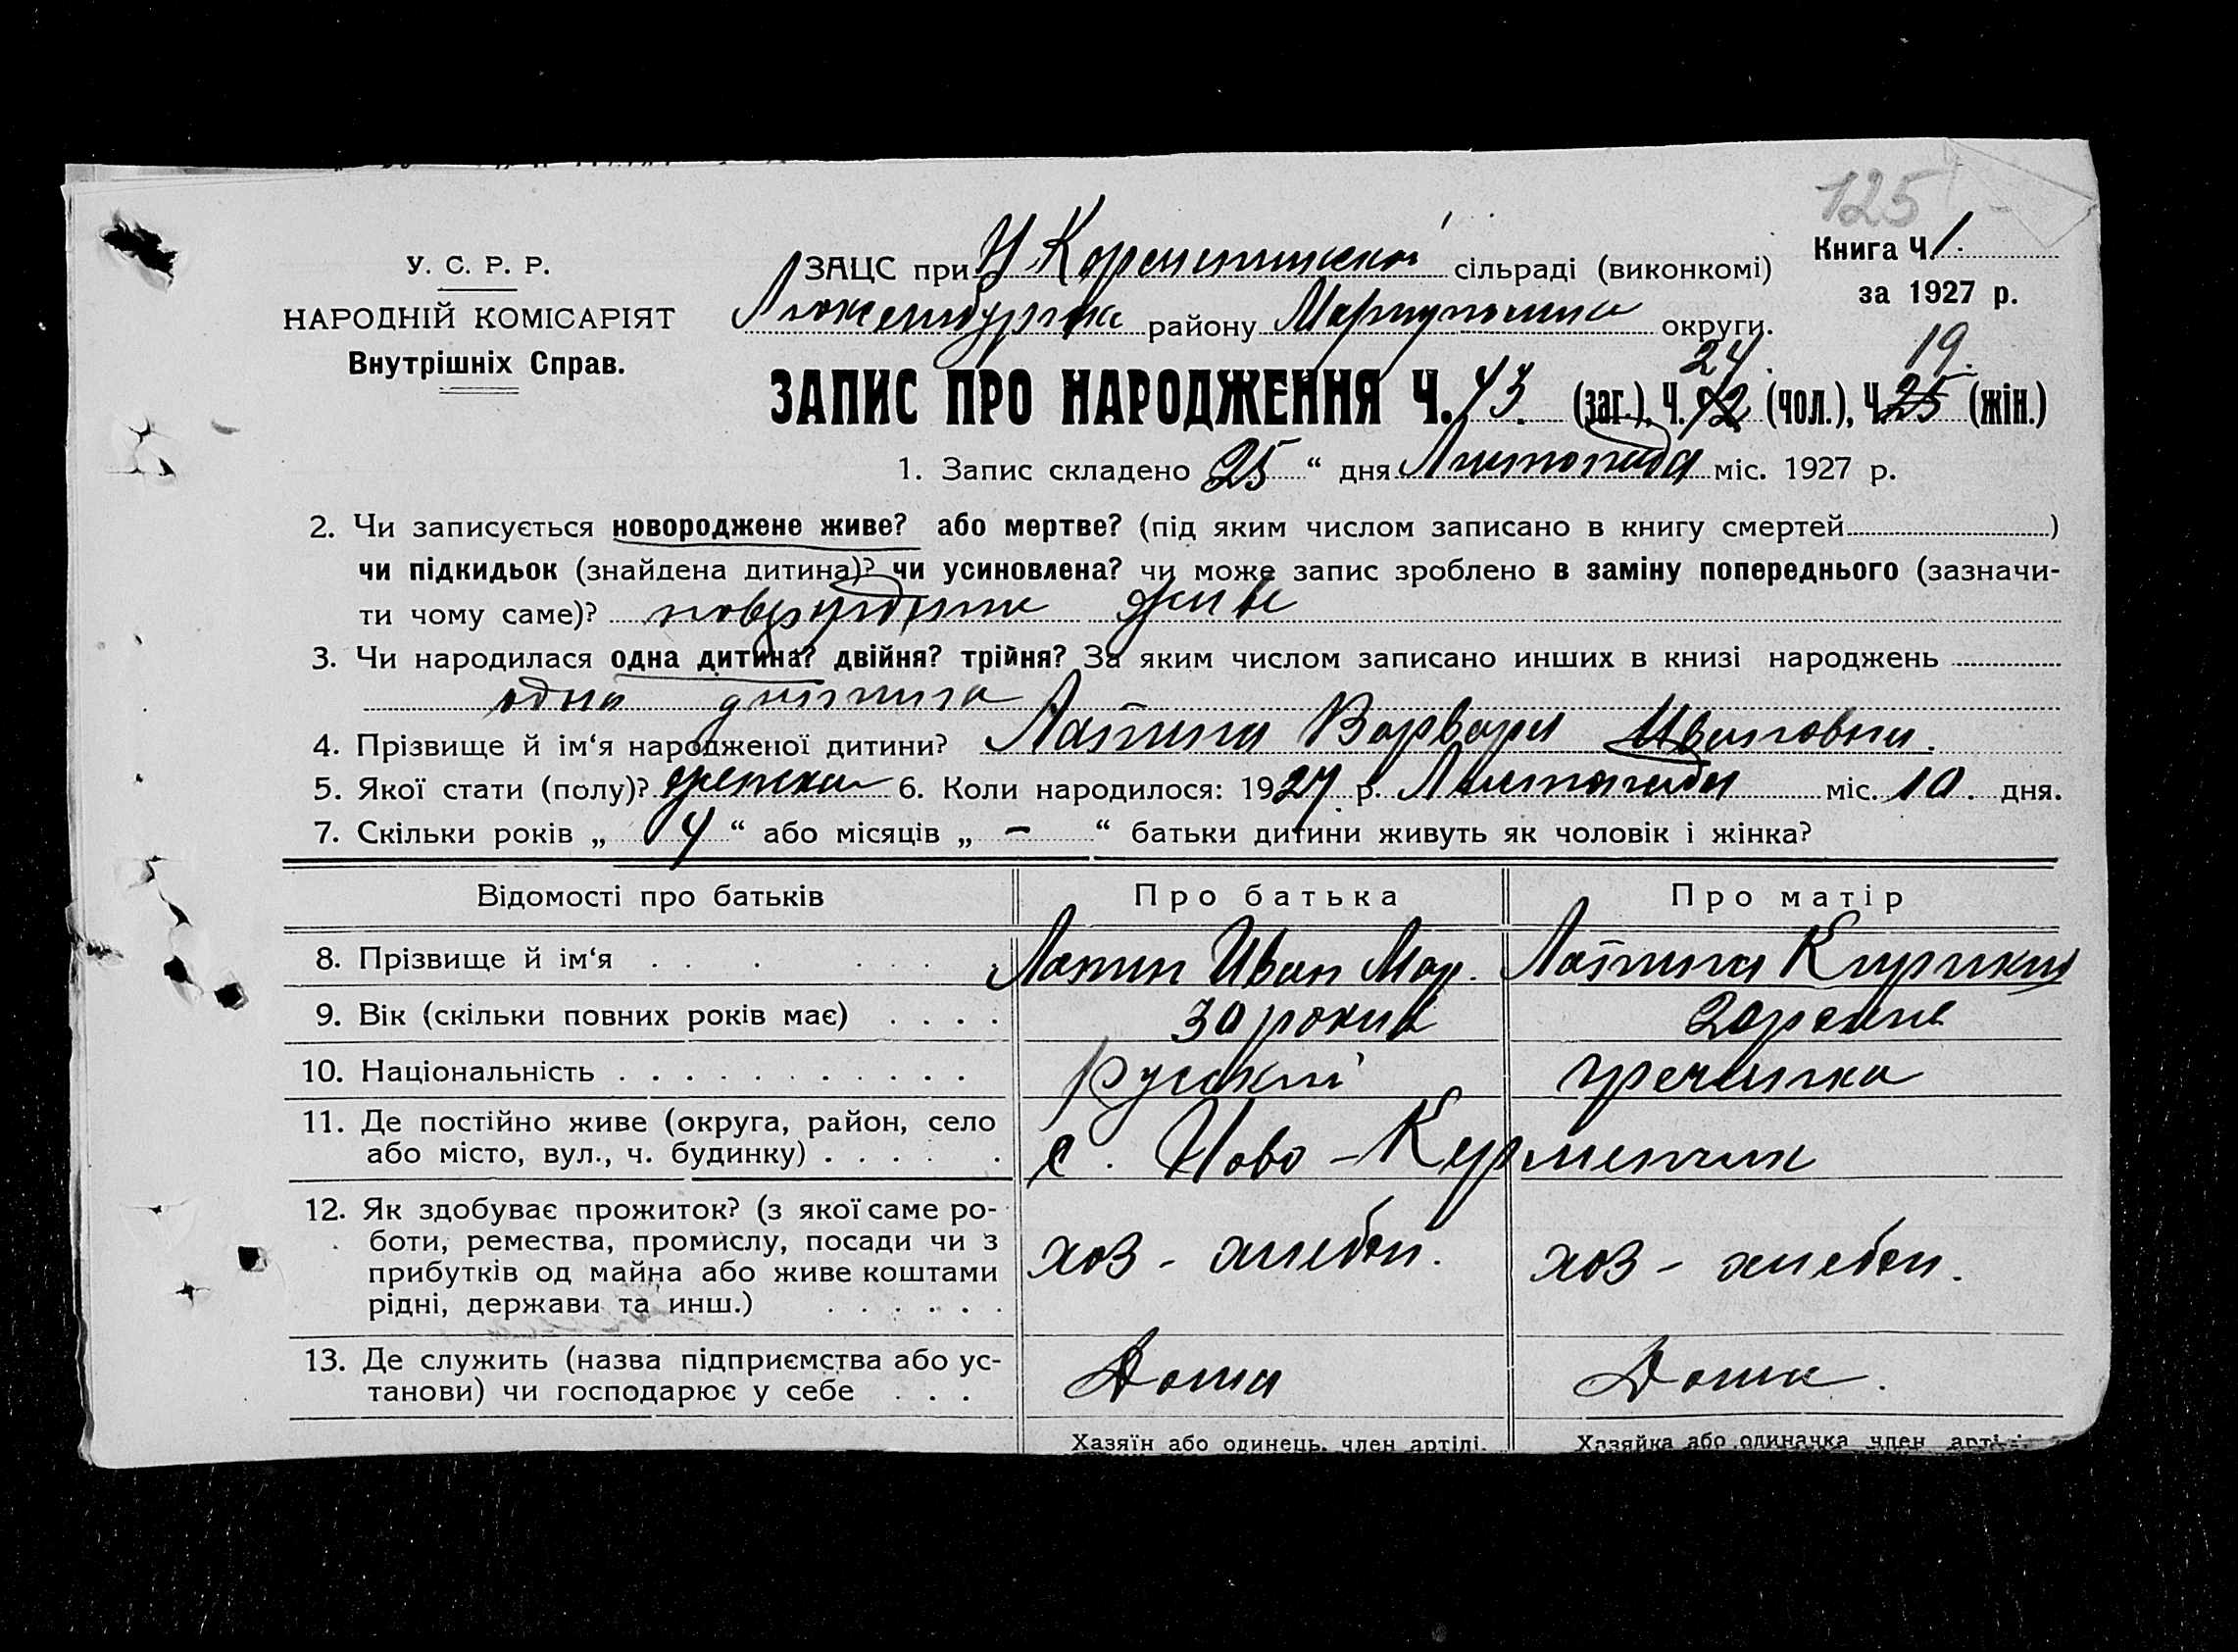 125
У. С. Р. Р.
НАРОДНІЙ КОМІСАРІЯТ
Внутрішніх Справ.
ЗАЦС при сільраді (виконкомі)
району округи.
Книга Ч. 1.
за 1927 р.
24. 19.
ЗАПИС ПРО НАРОДЖЕННЯ Ч. 43. (заг.), Ч. 42 (чол.), Ч. 25 (жін.)
1. Запис складено 25 “ дня Листопада міс. 1927 р.
2. Чи записується новороджене живе? або мертве? (під яким числом записано в книгу смертей )
чи підкидьок (знайдена дитина)? чи усиновлена? чи може запис зроблено в заміну попереднього (зазначи-
ти чому саме)? живе
3. Чи народилася одна дитина? двійня? трійня? За яким числом записано инших в книзі народжень
одна дитина
4. Прізвище й ім‘я народженої дитини? Лапина Варвара Ивановна.
5. Якої стати (полу)? женска 6. Коли народилося: 1927 р. Листопада міс. 10. дня.
7. Скільки років „ 4 “ або місяців „ – “ батьки дитини живуть як чоловік і жінка?
Відомості про батьків Про батька Про матір
8. Прізвище й ім‘я . . . . . . Лапин Иван Мар. Лапина
9. Вік (скільки повних років має) . . . . 30 20
10. Національність . . . . . . . . . . . . русский гречанка
11. Де постійно живе (округа, район, село
або місто, вул., ч. будинку) . . . . . с. Ново-Керменчик
12. Як здобуває прожиток? (з якої саме ро-
боти, ремества, промислу, посади чи з
прибутків од майна або живе коштами
рідні, держави та инш.) . . . . . . хоз - хлебоп. хоз - хлебоп.
13. Де служить (назва підприємства або ус-
танови) чи господарює у себе . . . Дома Дома.
Хазяїн або одинець, член артілі. Хазяйка або одиначка член арті